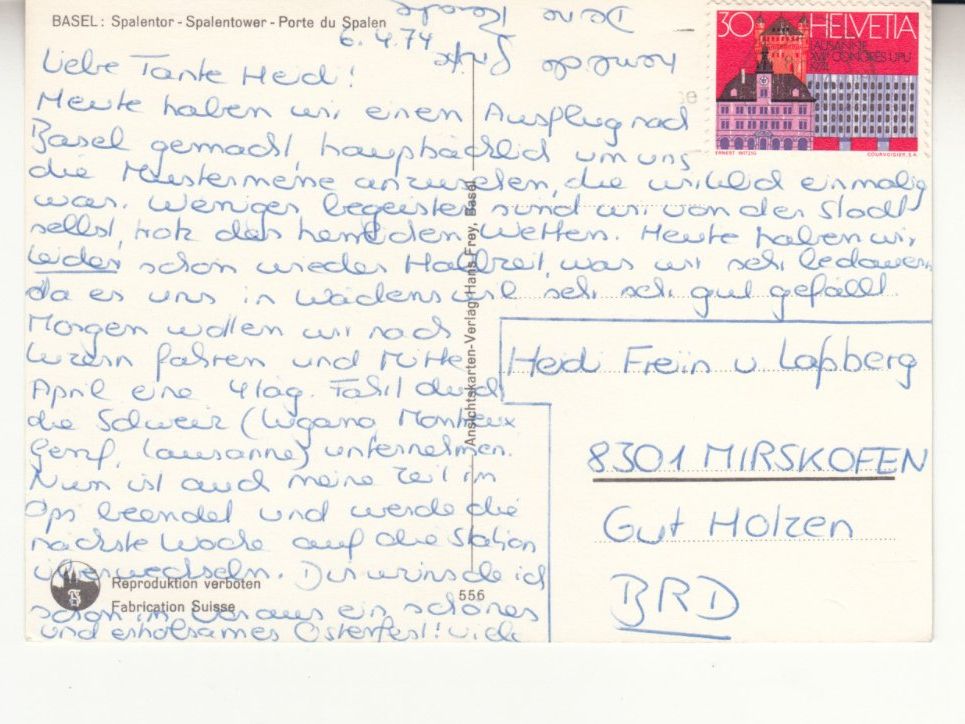 BASEL: Spalentor - Spalentower - Porte du Spalen
6.4.74
Liebe Tante Heidi!
Heute haben wir einen Ausflug nach
Basel gemacht, hauptsächlich um uns
die Mustermesse anzusehen, die wirklich einmalig
war. Weniger begeistert sind wir von der Stadt
selbst, trotz des herrlichen Wetters. Heute haben wir
leider schon wieder Halbzeit, was wir sehr bedauern,
da es uns in Wädenswil sehr sehr gut gefällt
Morgen wollen wir nach
Luzern fahren und Mitte
April eine 4täg. Fahrt durch
die Schweiz (Lugano, Montreux
Genf, Lausanne) unternehmen.
Nun ist auch meine Zeit im
Ops beendet und werde die
nächste Woche auf die Station
überwechseln. Dir wünsche ich
schon im Voraus ein schönes
und erholsames Osterfest! Viele
herzliche Grüße
Deine
Ansichtskarten-Verlag Hans Frey, Basel
Reproduktion verboten
Fabrication Suisse
556
30 HELVETIA
LAUSANNE
XVIIe CONGRES UPU
1974
COURVOISIER S.A.
Heidi Freiin v Laßberg
8301 MIRSKOFEN
Gut Holzen
BRD